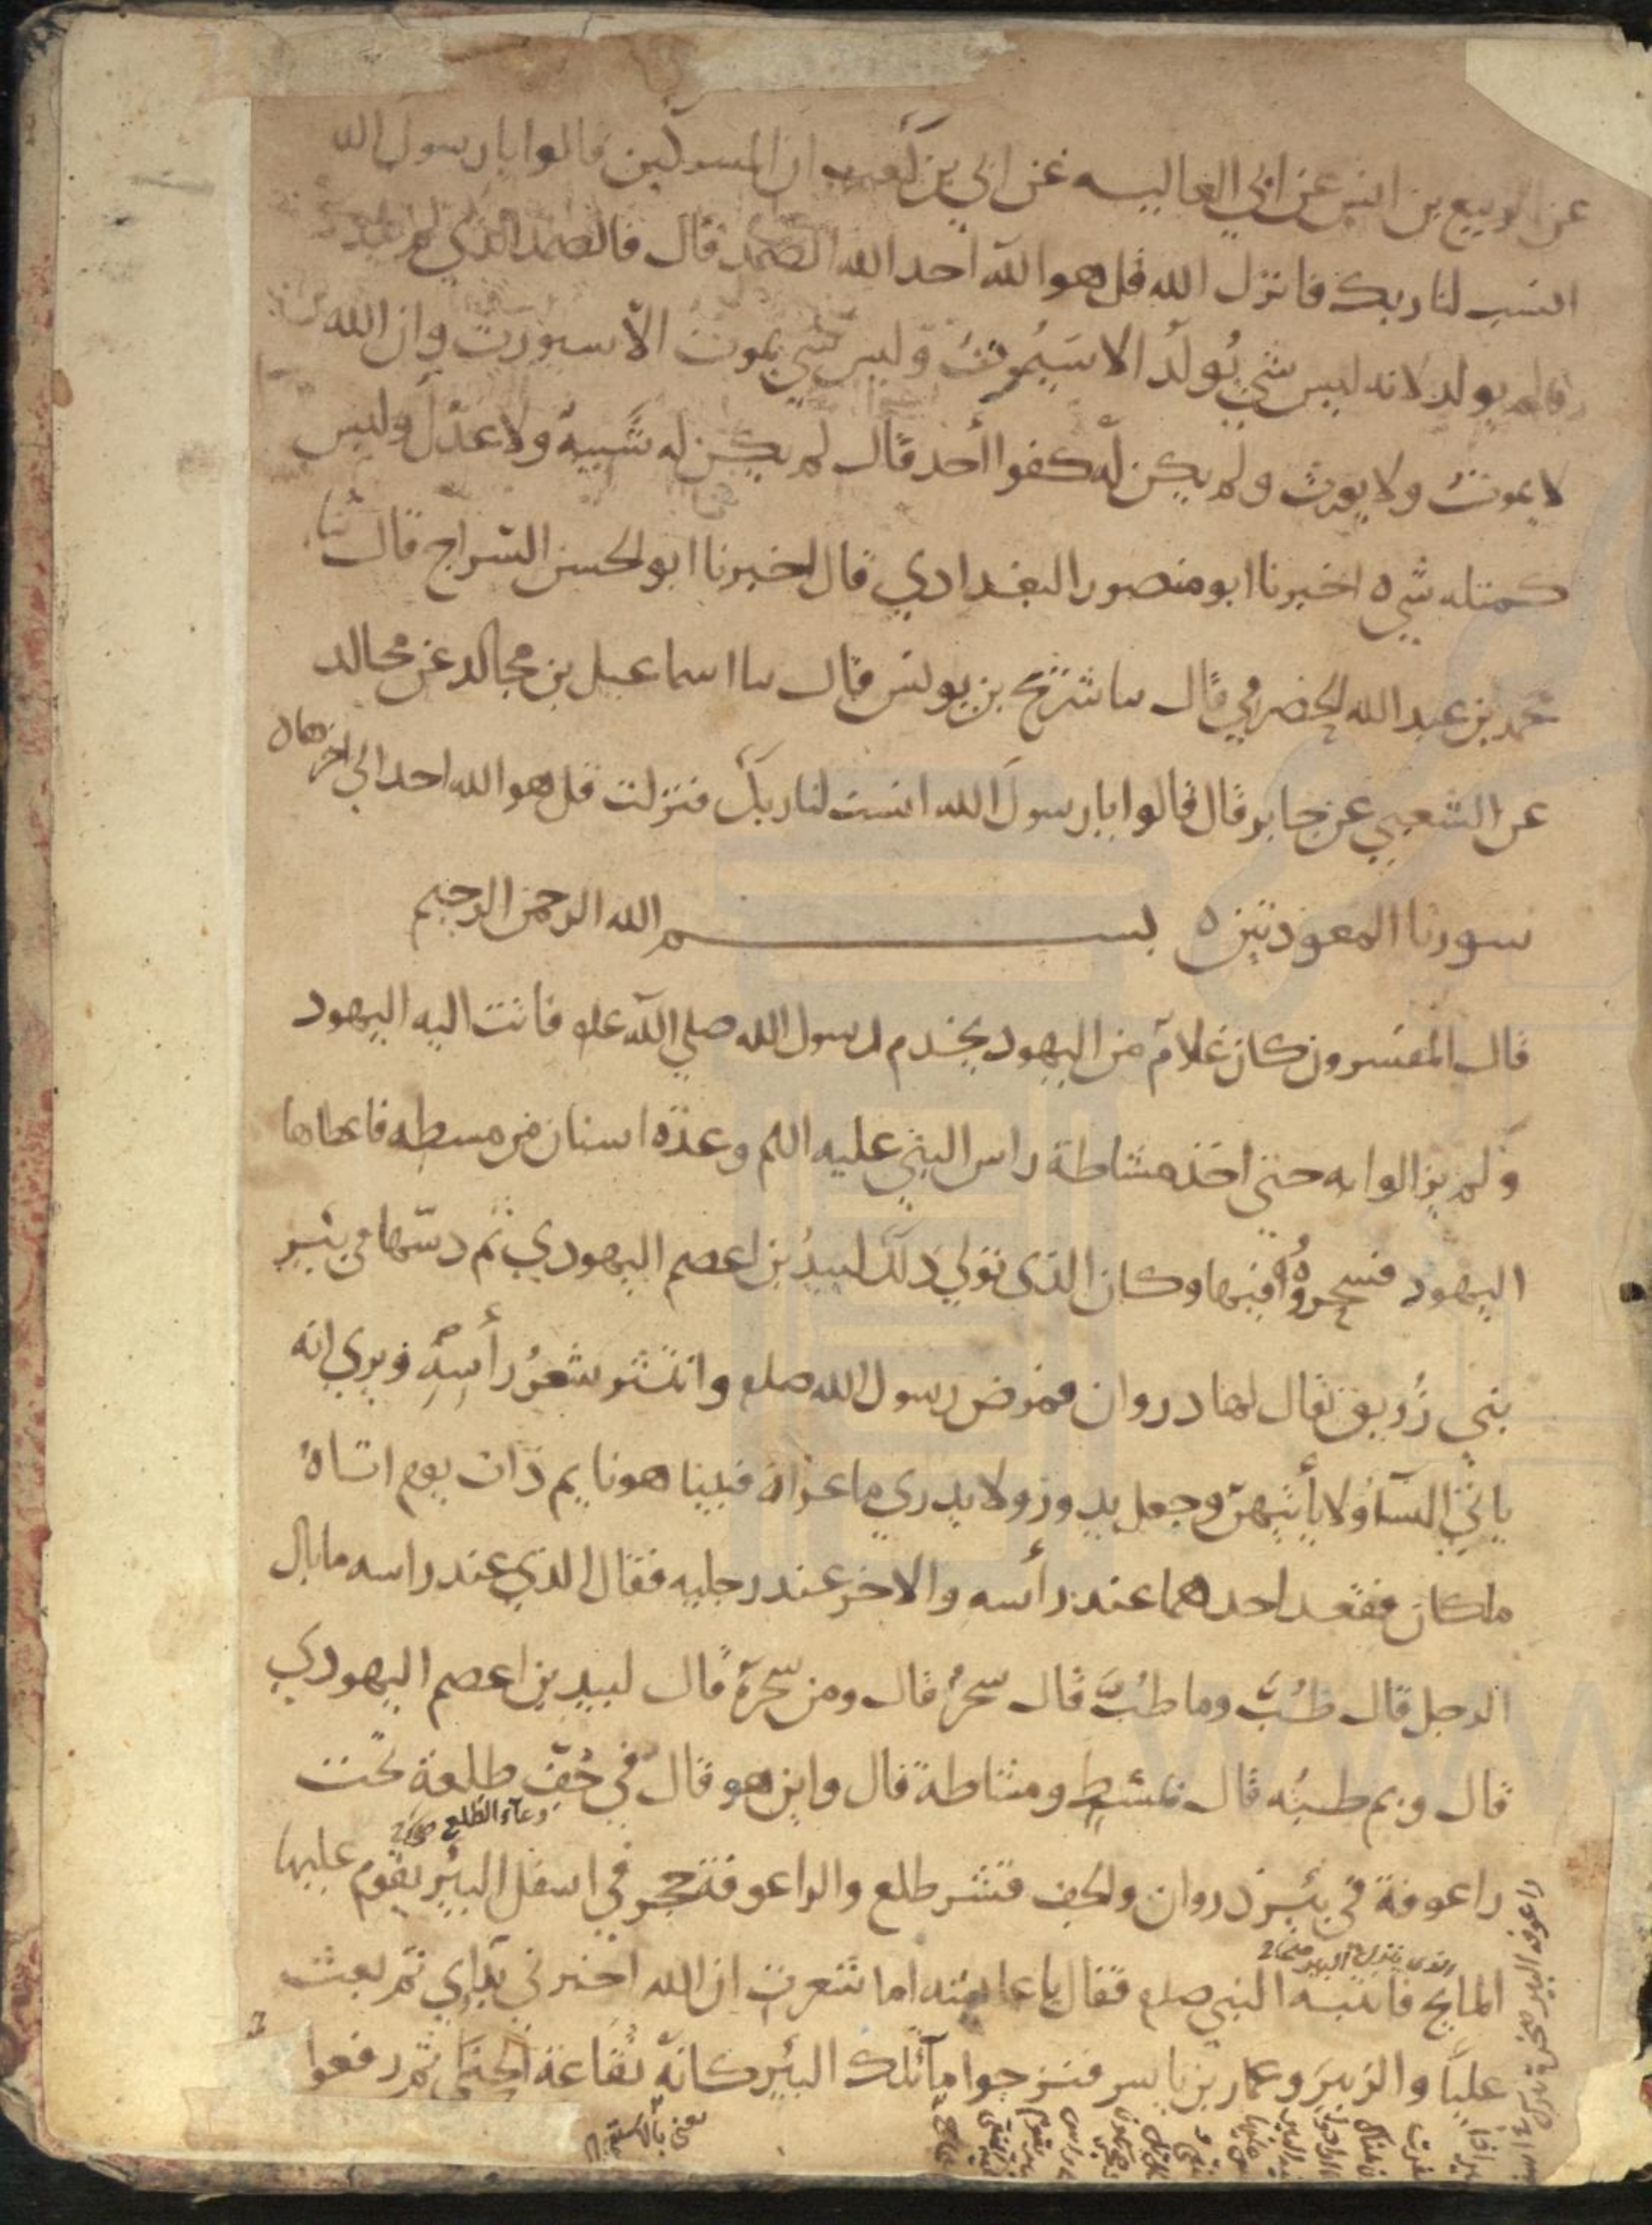 عن الربيع بن انس عن ابي العاليه عن ابي بن كعب ان المشركين قالوا يا رسول الله
انسب لنا ربك فانزل الله قل هو الله احد الله الصمد قال فالصمد الذي لم يلد
ولم يولد لانه ليس شي يُولدُ الا سَيَموتُ وليس شي يموت الا سيورث وان الله
لا يموتُ ولا يورث ولم يكن له كفوا احد قال لم يكن له شَبيهٌ ولا عَدْلٌ وليس
كمثله شي ه اخبرنا ابو منصور البغدادي قال اخبرنا ابو الحسن السراج قال ثنا
محمد بن عبد الله الحضرمي قال سا شريح بن يونس قال سا اسماعيل بن مجالد عن مجالد
عن الشعبي عن جابر قال قالوا يا رسول الله انسب لنا ربك فنزلت قل هو الله احد الى اخرها ه
سورتا المعوذتين ه بســــم الله الرحمن الرحيم
قال المفسرون كان غلام من اليهود يخدم رسول الله صلي الله عليه فاتت اليه اليهود
ولم يزالوا به حتى اخذ مشاطة راس النبي عليه السلم وعدة اسنان من مسطه فاعطاها
اليهود فسحروُهُ فيها وكان الذي تولي ذلك لبيدُ بن اعصم اليهودي ثم دسّها في بئر
بني زُريق يقال لها دروان فمرض رسول الله صلعم وانتثر شعرُ رأسِهِ ويري انه
ياتي النساَ ولا يأتيهنّ وجعل يدور ولا يدري ما عراه فبينا هو نايم ذات يوم اتاهُ
ملكان فقعد احدهما عند رأسه والاخر عند رجليه فقال الذي عند راسه ما بال
الرجل قال طُبَّ وما طُبَّ قال سُحر قال ومن سَحَرَهُ قال لبيد بن اعصم اليهودي
قال وبم طبّه قال بمُشطٍ ومشاطة قال واين هو قال في جُفِّ طلعة تحت
وعاء الطلع
راعوفة في بئر ذروان والجف قشر طلع والراعوفة حجر في اسفل البئر يقوم عليها
الذي ينزل البير
المايح فانتبه النبي صلعم فقال يا عايشه اما شعرت ان الله اخبرني بدايي ثم بعث
عليًا والزبيرَ وعمار بن ياسر فنزحوا مآء تلك البئر كانه نقاعة الحنا ثم رفعوا